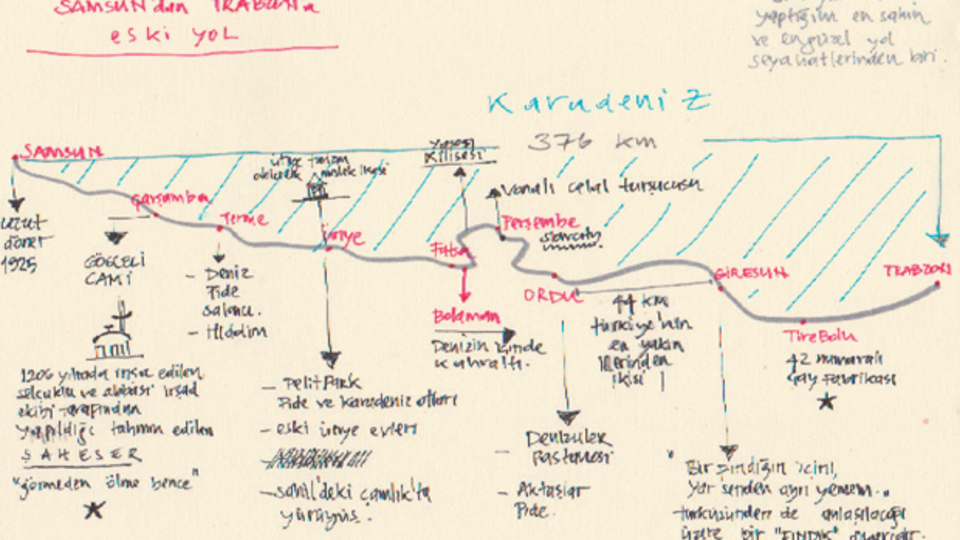 SAMSUN'dan TRABZON'a
eski yol
yaptığım en sakin
ve en güzel yol
seyahatlerinden biri.
Karadeniz
376 km
SAMSUN
Çarşamba
Terme
Ünye
Fatsa
Yason
Kilisesi
Vonalı Celal turşucusu
Perşembe
slowcity
ORDU
GİRESUN
TRABZON
Tirebolu
Bolaman
döner
1925
GÖĞCELİ
CAMİ
- Deniz
Pide
salonu.
- Hiddim
Denizin içinde
kahvaltı.
44 km
türkiye'nin
en yakın
illerinden
ikisi !
42 numaralı
çay fabrikası
1206 yılında inşa edilen
selçuklu ve
ekibi tarafından
yapıldığı tahmin edilen
ŞAHESER
"görmeden ölme bence"
- Pelit Park
Pide ve karadeniz otları
- eski ünye evleri
- sahil'deki çamlık'ta
yürüyüş.
- Denizciler
Pastanesi
- Aktaşlar
Pide.
"Bir fındığın içini,
Yar senden ayrı yemem.."
türküsünden de anlaşılacağı
üzere bir "FINDIK"